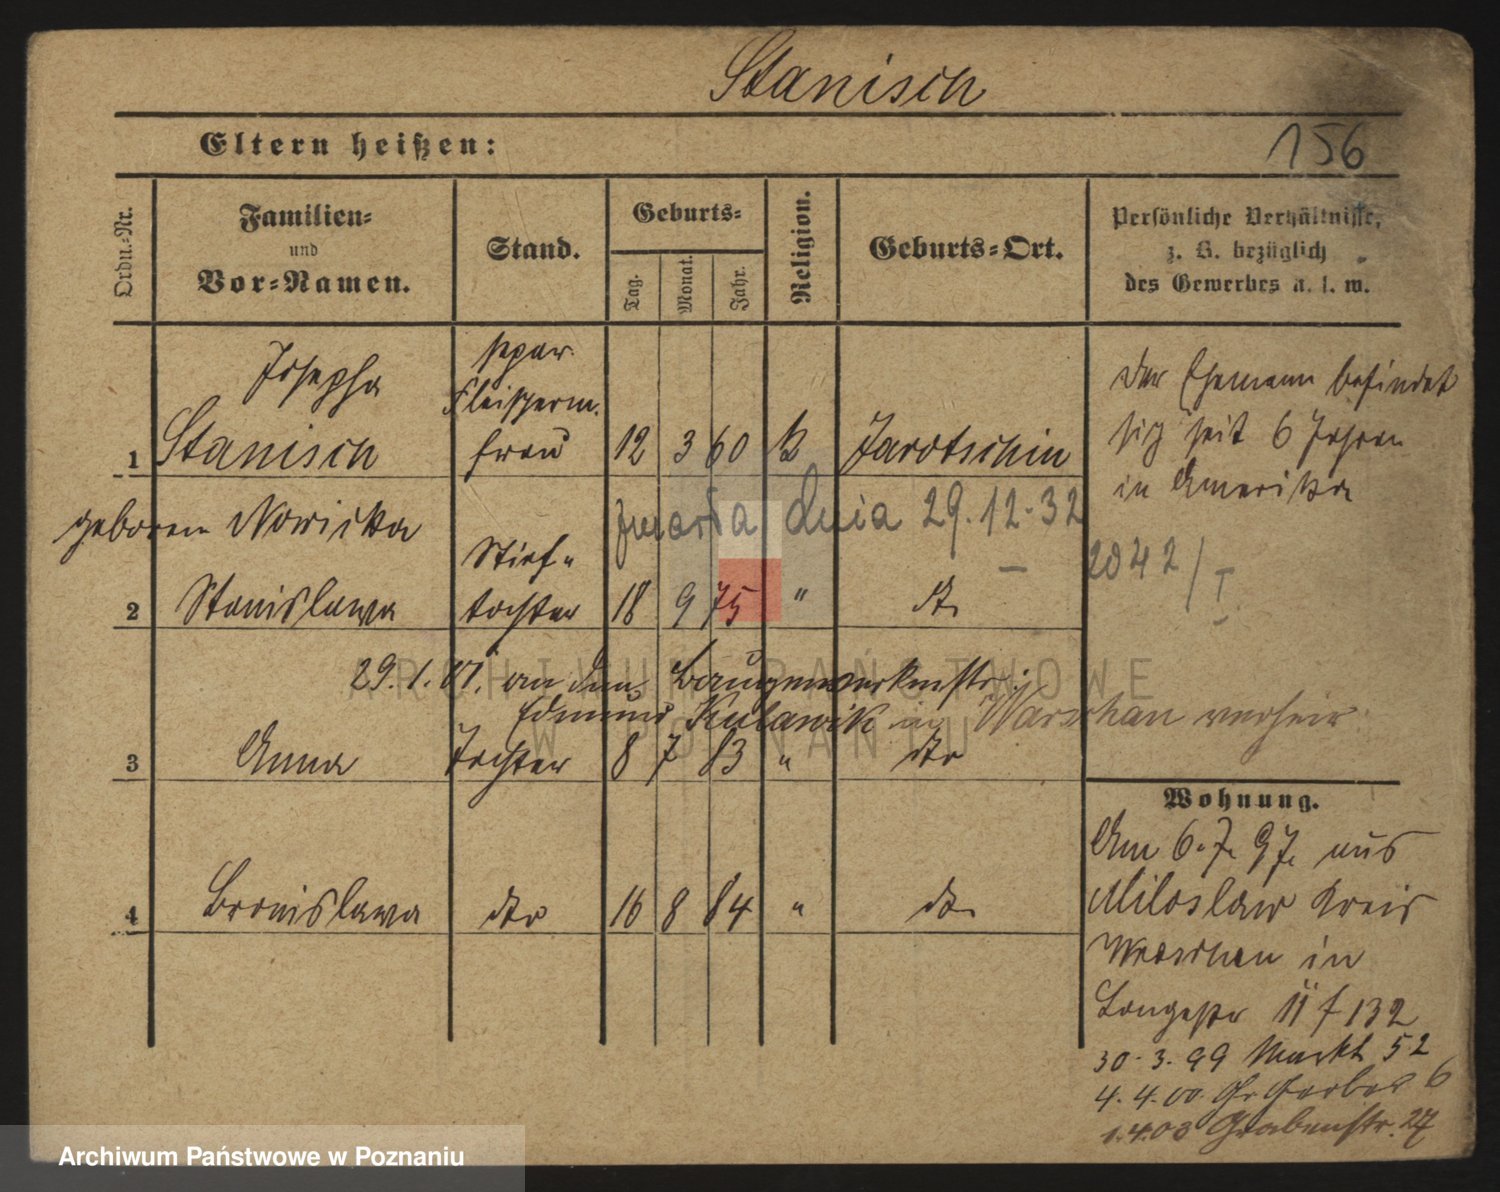 Stanisch
Eltern heißen:
156
Ordn.-Nr.
Familien-
und
Vor-Namen.
Stand.
Geburts-
Tag.
Monat.
Jahr.
Religion.
Geburts-Ort.
Persönliche Verhältnisse,
z. B. bezüglich
des Gewerbes u. s. w.
Josepha
separ.
Fleischerm.
1 Stanisch frau 12 3 60 K Jarotschin
Der Ehemann befindet
sich seit 6 Jahren
in Amerika
geborene Nowicka
zmarła dnia 29.12.32
2042/I
Stief-
2 Stanislawa tochter 18 9 75 " dto
29.1.01. an den Baugewerksmstr.
Edmund Kulawik in Warschau verheir.
3 Anna Tochter 8 7 83 " dto
4 Bronislawa dto 16 8 84 " dto
Wohnung.
Am 6.7.97. aus
Miloslaw Kreis
Wreschen in
Langestr 11 f 132
30.3.99 Markt 52
4.4.00. Gr Gerber 6
1.4.03 Grabenstr. 27
ARCHIWUM PAŃSTWOWE
W POZNANIU
Archiwum Państwowe w Poznaniu